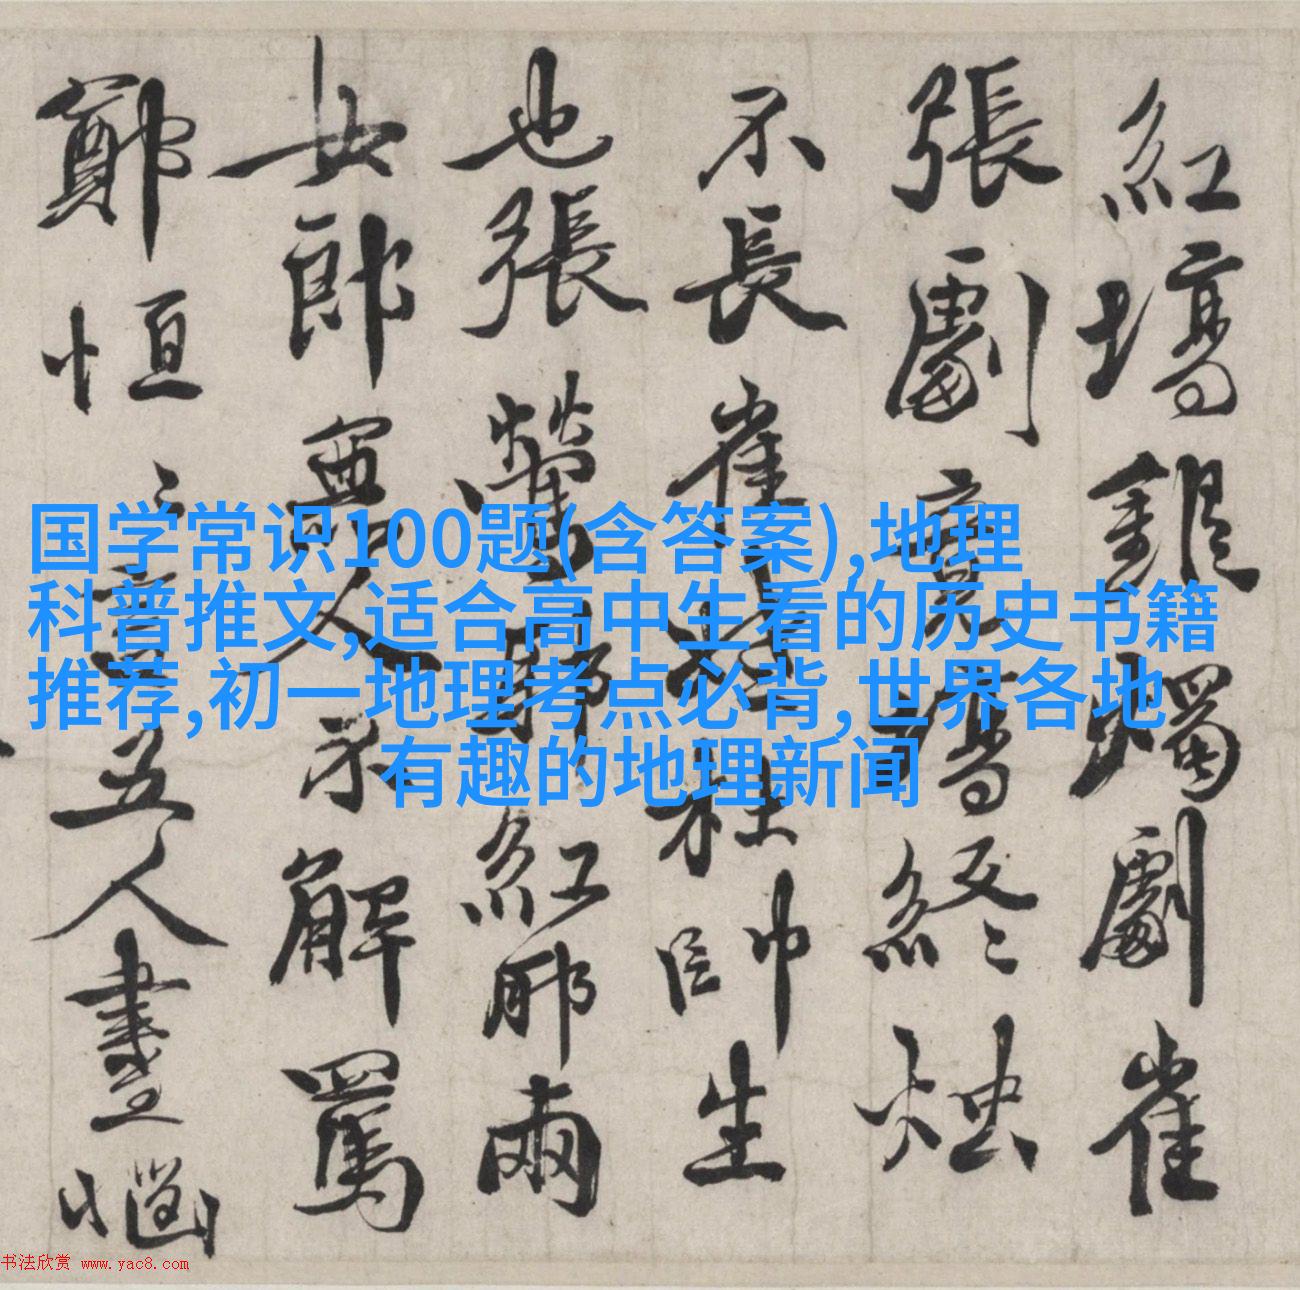 国学常识100题(含答案),地理
科普推文,适合高中生看的历史书籍
推荐,初一地理考点必背,世界各地
有趣的地理新闻
紅塲銀燭劇雀
張劇塲終
不長崔杜帥生
也張鶯紅那兩
女郎人不解罵
鄭恒五人畫惱
书法欣赏 www.yac8.com